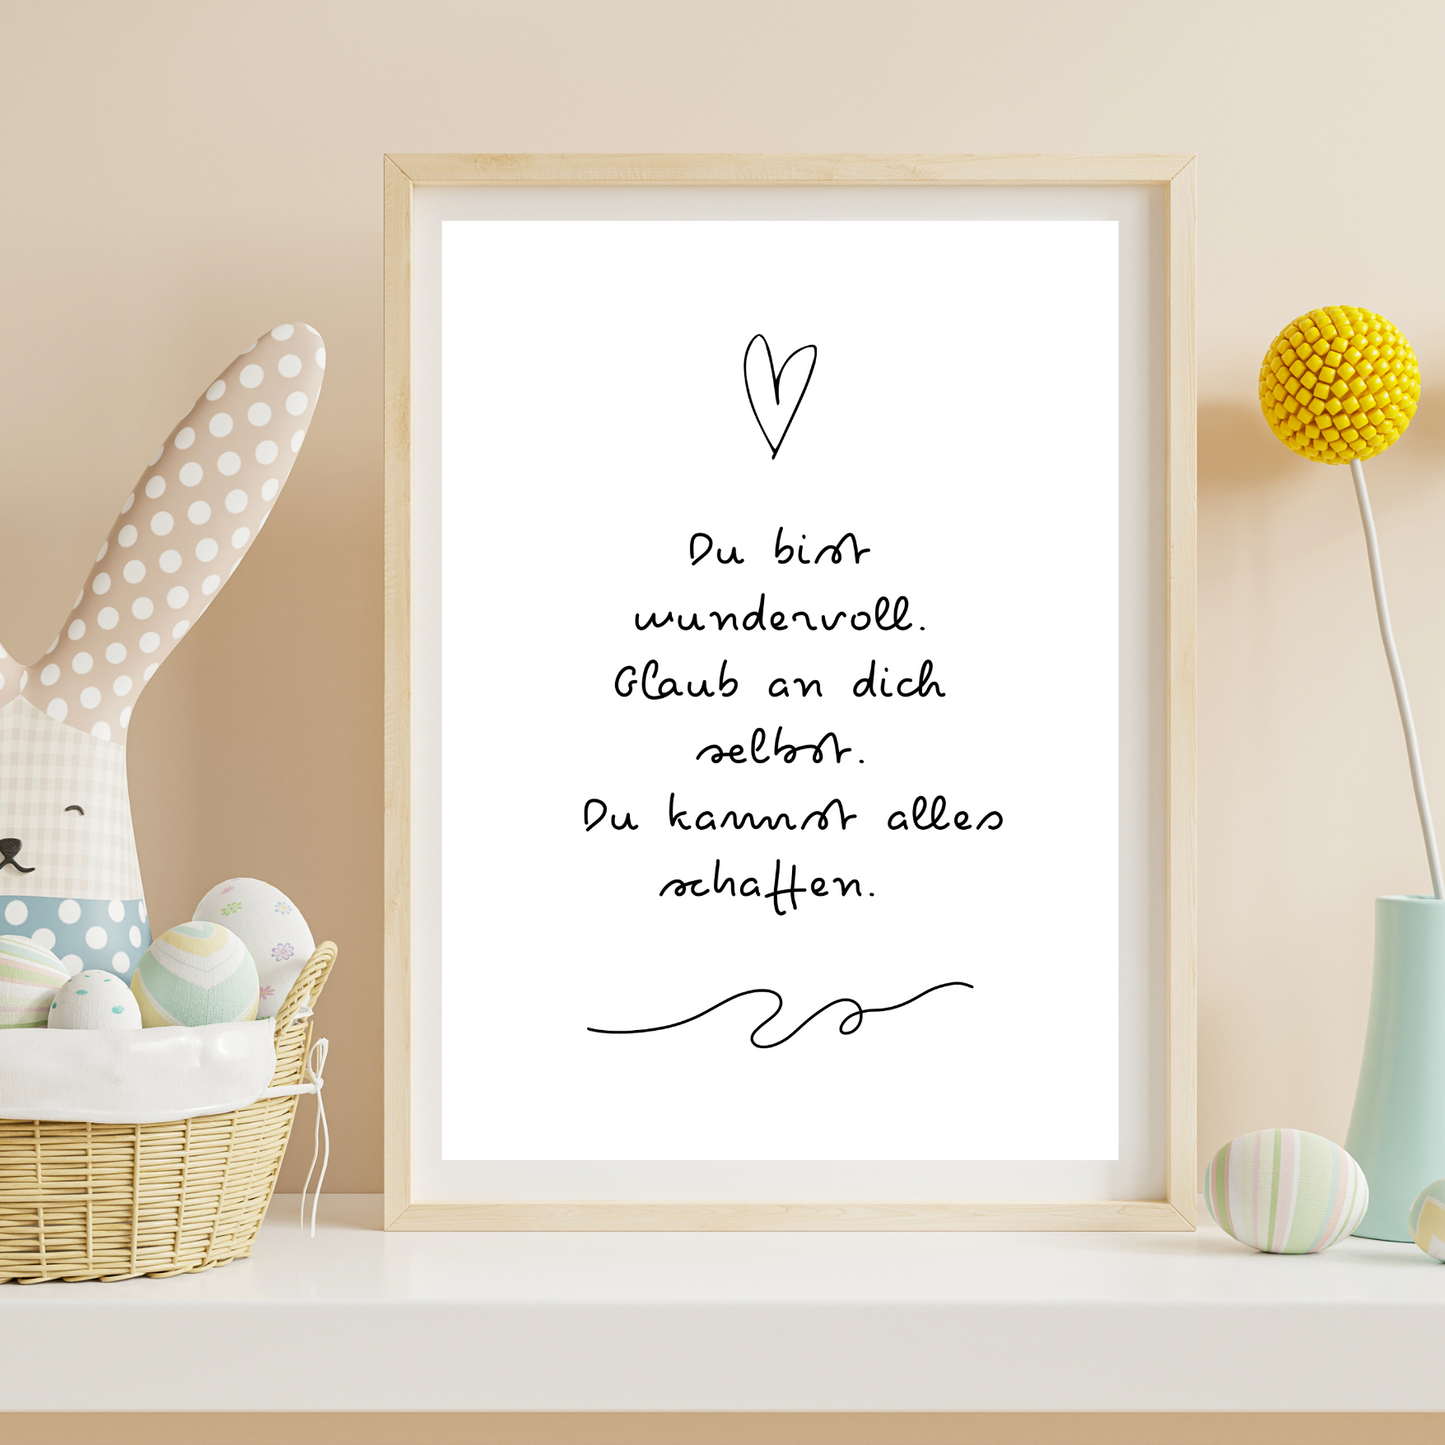 Du bist
wundervoll.
Glaub an dich
selbst.
Du kannst alles
schaffen.